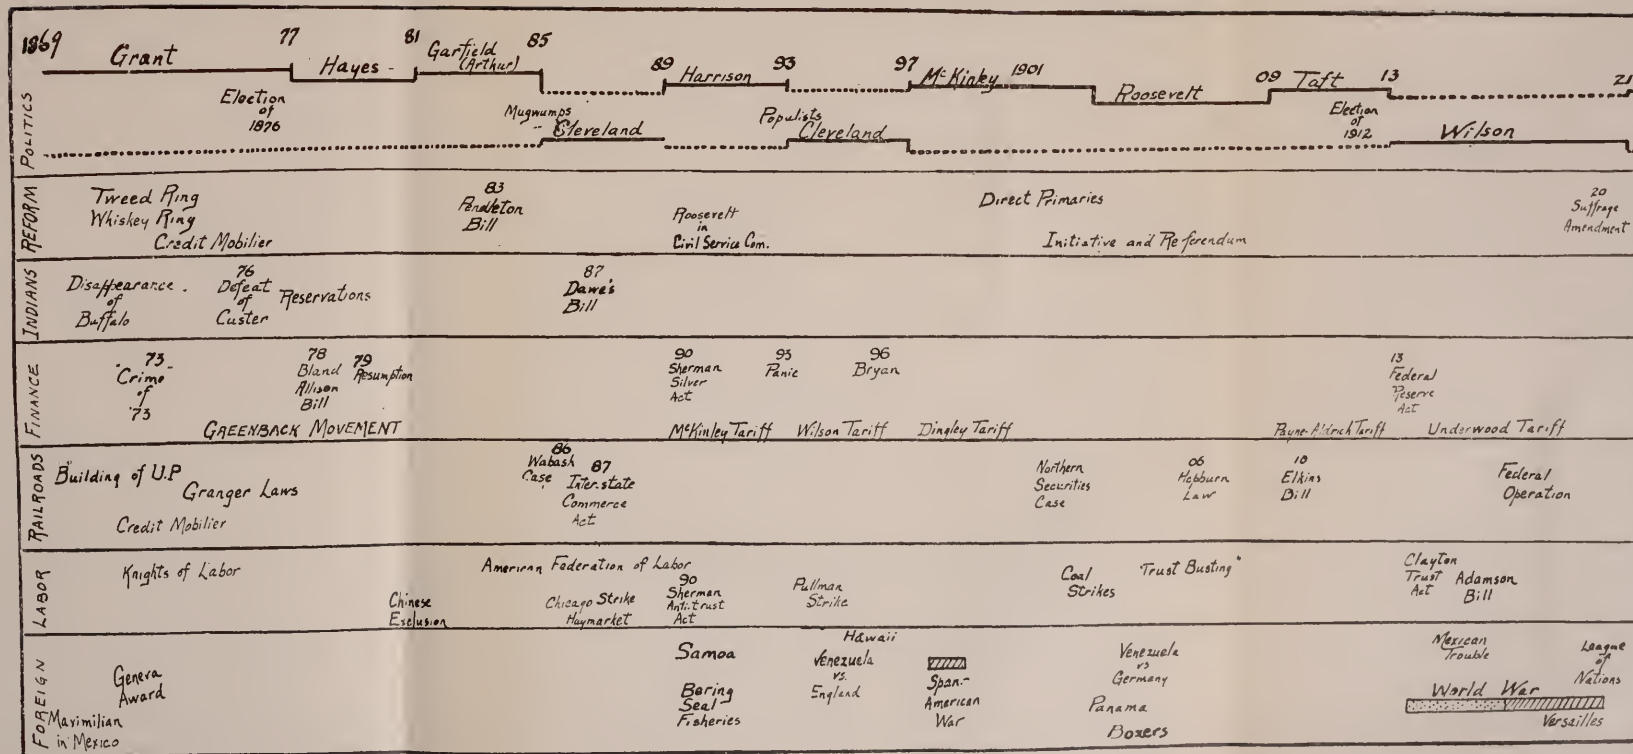 POLITICS
1869
Grant
77
Hayes -
81
Garfield
(Arthur)
85
89
Harrison
93
97
McKinley
1901
Roosevelt
09
Taft
13
21
Election
of
1876
Mugwumps
Cleveland
Populists
Cleveland
Election
of
1912
Wilson
REFORM
Tweed Ring
Whiskey Ring
Credit Mobilier
83
Pendleton
Bill
Roosevelt
in
Civil Service Com.
Direct Primaries
Initiative and Referendum
20
Suffrage
Amendment
INDIANS
Disappearance
of
Buffalo
76
Defeat
of
Custer
Reservations
87
Dawe's
Bill
FINANCE
73
"Crime
of
'73
78
Bland
Allison
Bill
79
Resumption
GREENBACK MOVEMENT
90
Sherman
Silver
Act
93
Panic
96
Bryan
McKinley Tariff
Wilson Tariff
Dingley Tariff
13
Federal
Reserve
Act
Payne-Aldrich Tariff
Underwood Tariff
RAILROADS
Building of U.P
Granger Laws
Credit Mobilier
86
Wabash
Case
87
Inter.state
Commerce
Act
Northern
Securities
Case
06
Hepburn
Law
10
Elkins
Bill
Federal
Operation
LABOR
Knights of Labor
Chinese
Exclusion
American Federation of Labor
Chicago Strike
Haymarket
90
Sherman
Anti.trust
Act
Pullman
Strike
Coal
Strikes
"Trust Busting"
Clayton
Trust
Act
Adamson
Bill
FOREIGN
Geneva
Award
Maximilian
in Mexico
Samoa
Bering
Seal
Fisheries
Hawaii
Venezuela
vs.
England
Span.-
American
War
Venezuela
vs
Germany
Panama
Boxers
Mexican
Trouble
World War
Versailles
League
of
Nations